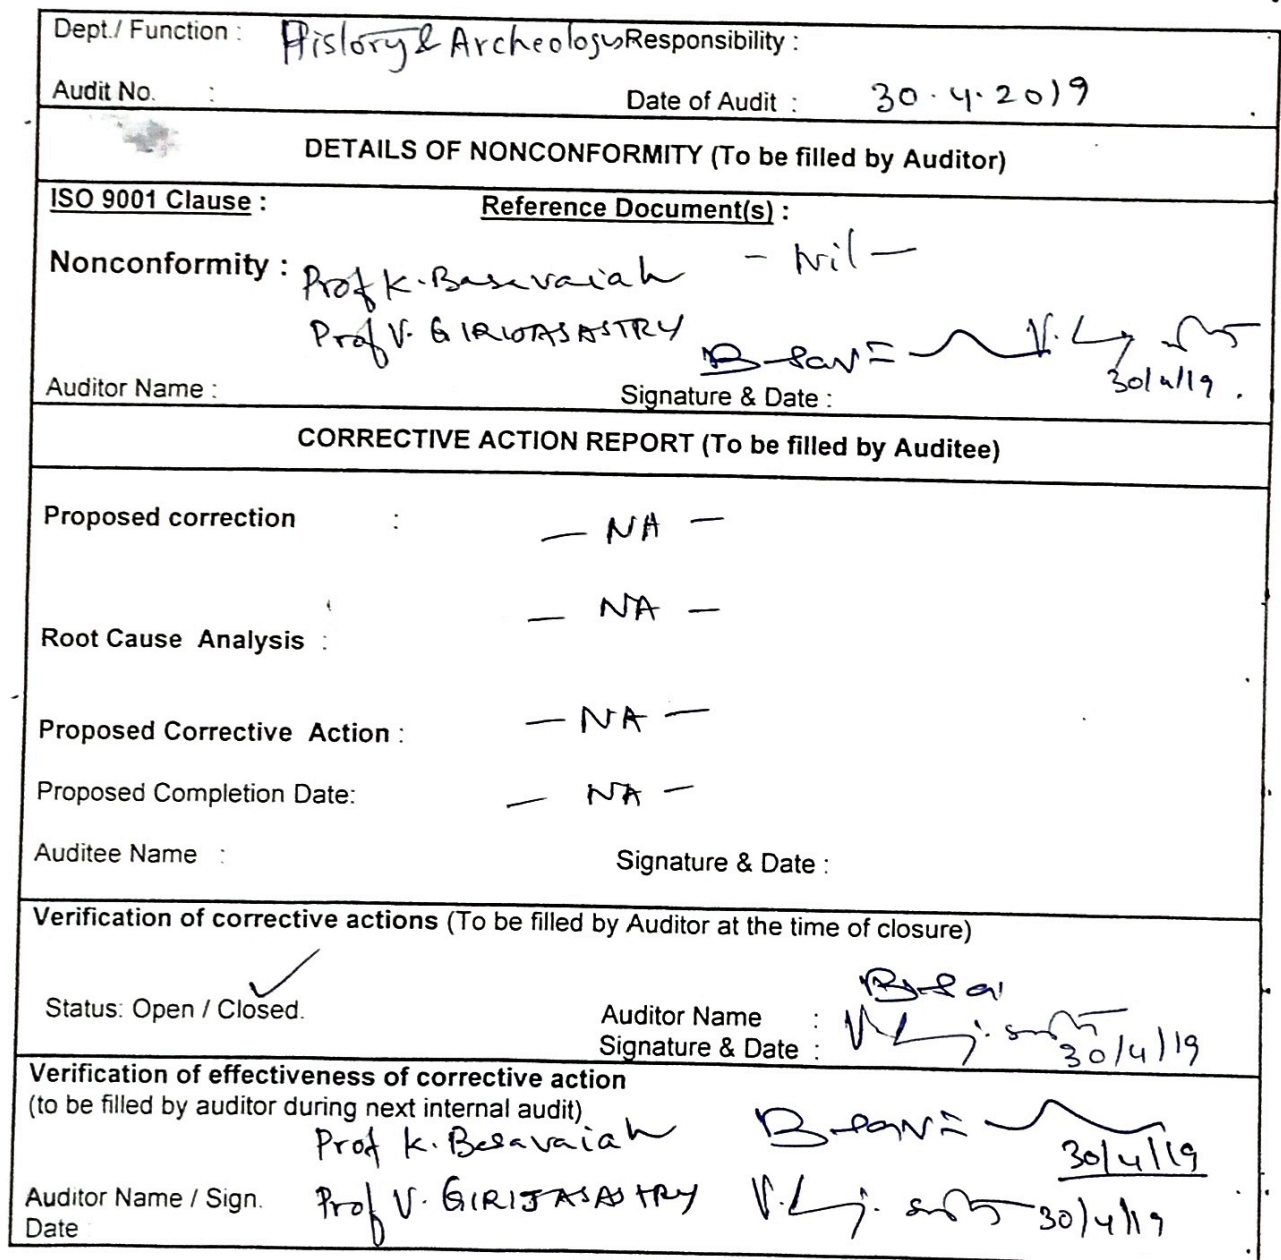 Dept./ Function : History & Archeology Responsibility :
Audit No. : Date of Audit : 30.4.2019
DETAILS OF NONCONFORMITY (To be filled by Auditor)
ISO 9001 Clause : Reference Document(s) :
Nonconformity : - Nil -
Prof K. Basavaiah
Prof V. GIRIJASASTRY
30/4/19.
Auditor Name : Signature & Date :
CORRECTIVE ACTION REPORT (To be filled by Auditee)
Proposed correction : - NA -
- NA -
Root Cause Analysis :
Proposed Corrective Action : - NA -
Proposed Completion Date: - NA -
Auditee Name : Signature & Date :
Verification of corrective actions (To be filled by Auditor at the time of closure)
Status: Open / Closed. Auditor Name :
Signature & Date : 30/4/19
Verification of effectiveness of corrective action
(to be filled by auditor during next internal audit)
Prof K. Basavaiah 30/4/19
Auditor Name / Sign. Prof V. GIRIJASASTRY 30/4/19
Date